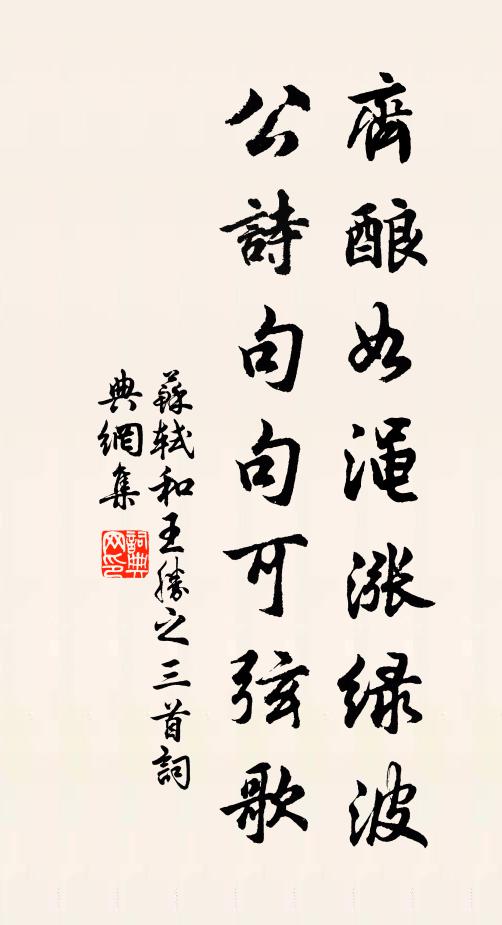 齊酿如渑漲绿波
公詩句句可弦歌
蘇軾和王勝之三首詞
典網集
詞典网印